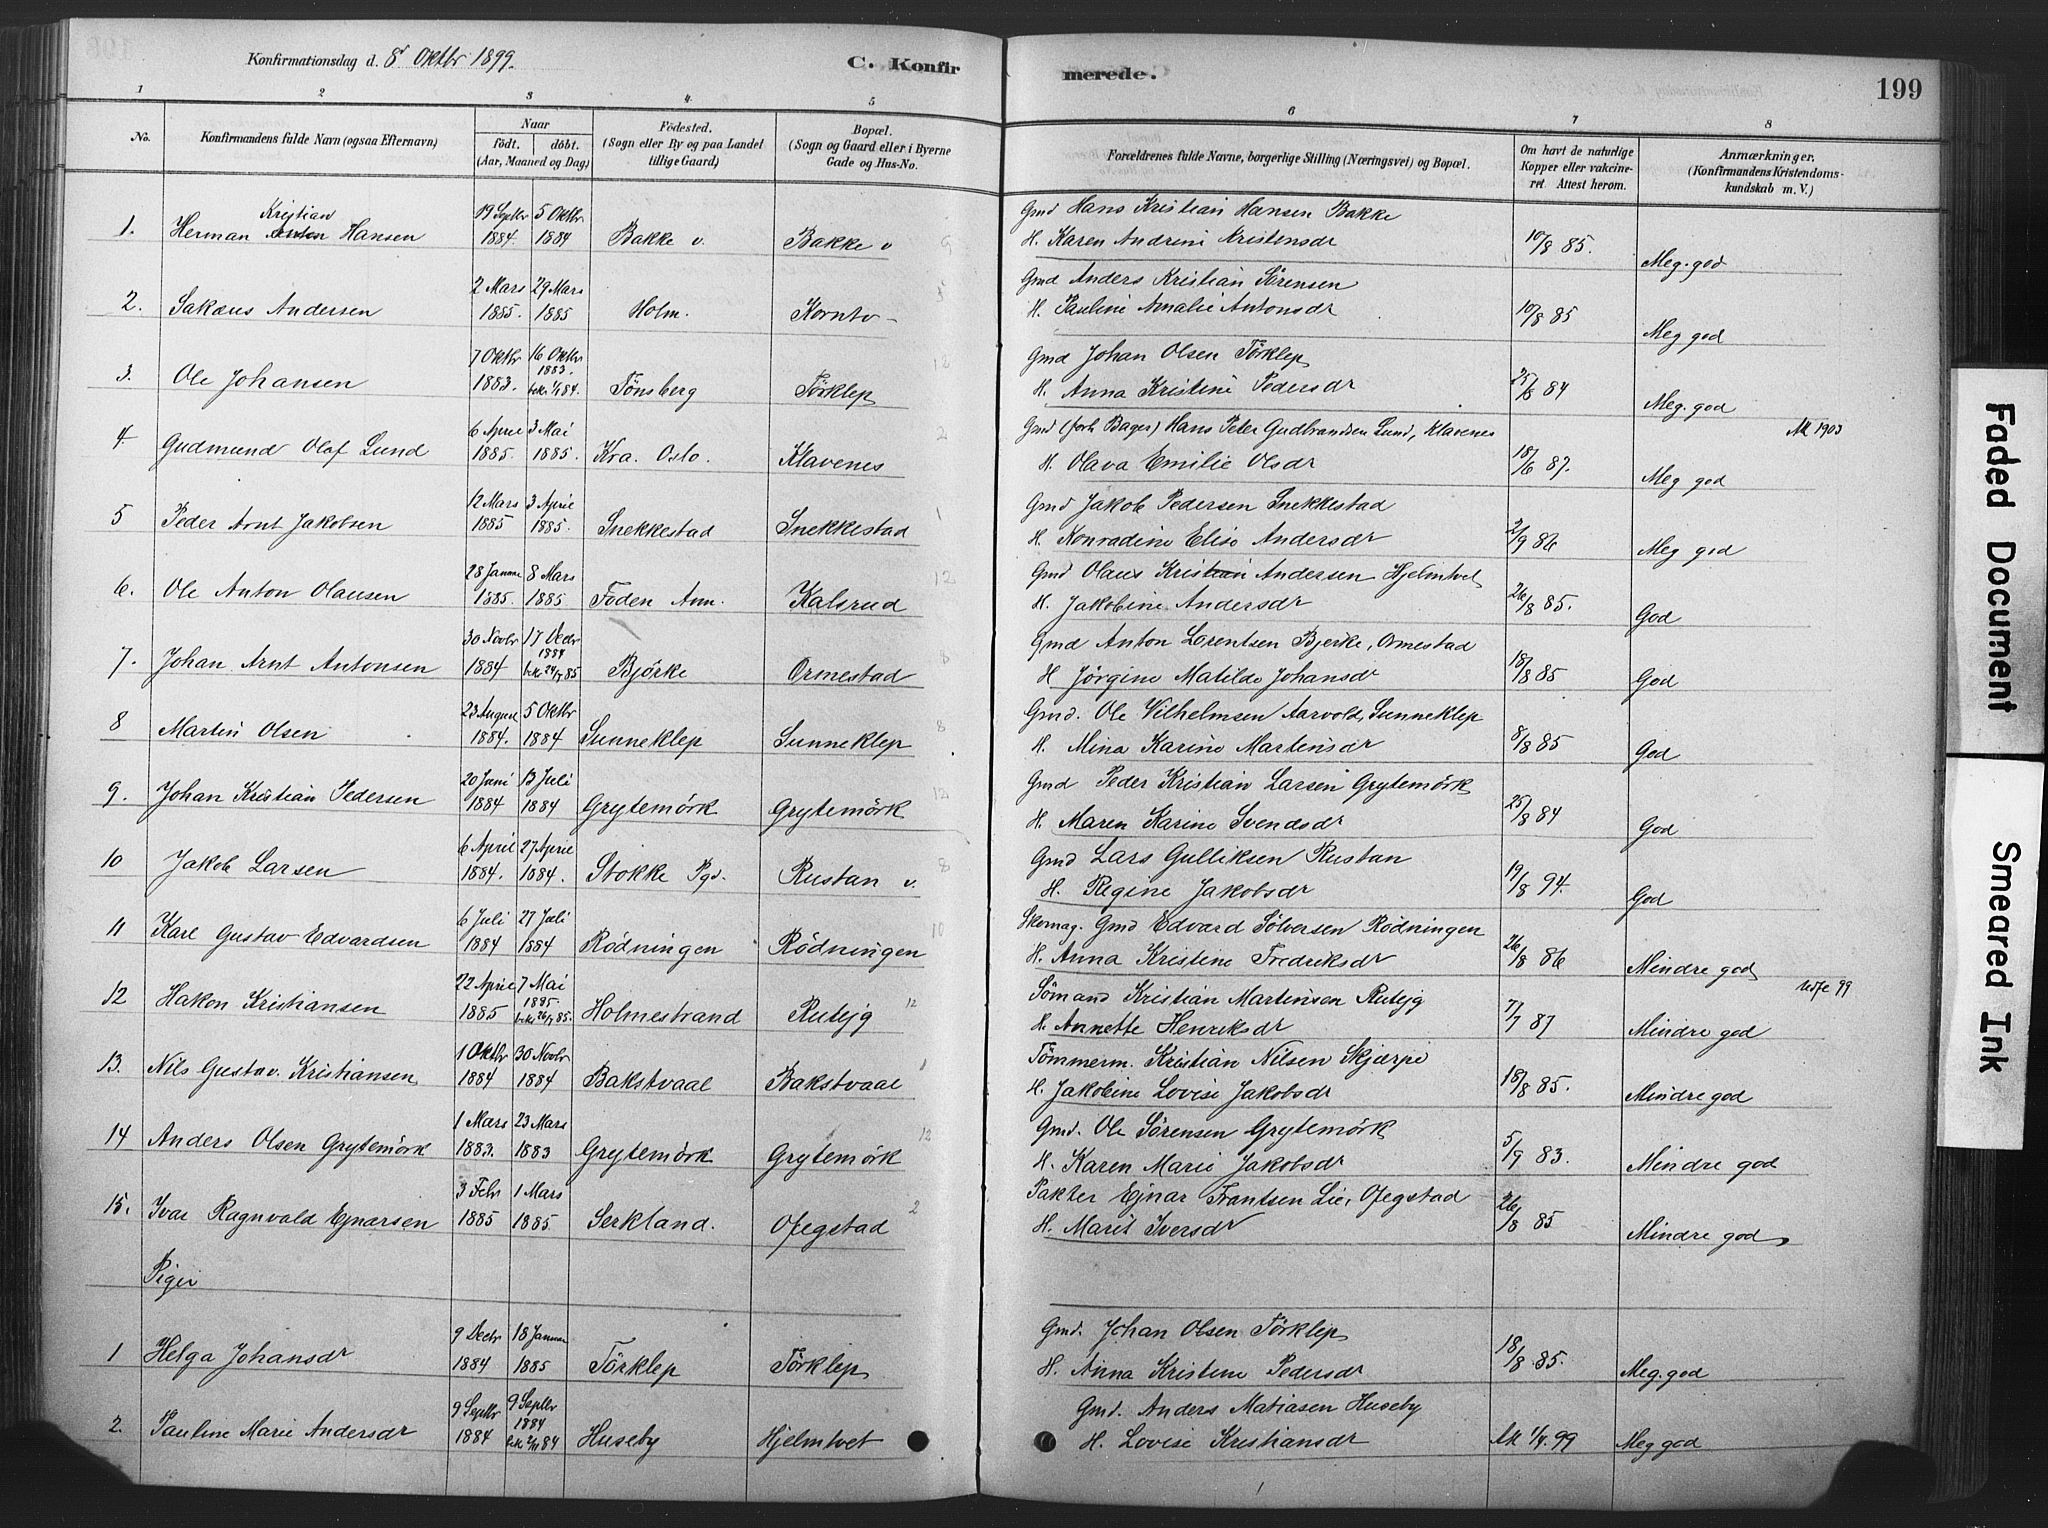 Konfirmationsdag d. 8 Oktbr 1899.
C. Konfirmerede.
199
1 2 3 4 5 6 7 8
No.
Konfirmandens fulde Navn (ogsaa Efternavn)
Naar
födt. döbt.
(Aar, Maaned og Dag)
Födested.
(Sogn eller By og paa Landet
tillige Gaard)
Bopæl.
(Sogn og Gaard eller i Byerne
Gade og Hus-No.
Forældrenes fulde Navne, borgerlige Stilling (Næringsvei) og Bopæl.
Om havt de naturlige
Kopper eller vakcine-
ret. Attest herom.
Anmærkninger.
(Konfirmandens Kristendoms-
kundskab m. V.)
1. Herman Kristian Hansen 19 Septbr 1884. 5 Oktbr 1884 Bakke v. Bakke v
Gmd Hans Kristian Hansen Bakke
H. Karen Andrine Kristensdr 10/8 85. Meg. god
2. Sakæus Andersen 2 Mars 1885. 29 Mars 1885 Holm. Korntv
Gmd Anders Kristian Sörensen
H. Pauline Amalie Antonsdr 10/8 85 Meg god
3. Ole Johansen 7 Oktbr 1883. 16 Oktbr 1883. bek. 1/1 84. Tönsberg Törklep 12
Gmd Johan Olsen Törklep
H. Anna Kristine Pedersdr 25/8 84 Meg. god
4. Gudmund Olaf Lund 6 April 1885. 3 Mai 1885. Kra. Oslo. Klavenes 2
Gmd (forh Bager) Hans Peter Gudbrandsen Lund, Klavenes
H. Olava Emilie Olsdr 18/6 87. Meg god Att 1903
5 Peder Arnt Jakobsen 12 Mars 1885 3 April 1885. Snekkestad Snekkestad 1
Gmd Jakob Pedersen Snekkestad
H. Konradine Elise Andersdr 2/9 86 Meg god
6. Ole Anton Olausen 28 Januar 1885. 8 Mars 1885 Foden Ann. Kalsrud 12
Gmd Olaus Kristian Andersen Hjelmtvet
H. Jakobine Andersdr 26/8 85. God
7. Johan Arnt Antonsen 30 Novbr 1884 17 Decbr 1884 bek. 24/5 85 Björke Ormestad 8
Gmd Anton Lorentsen Bjerke, Ormestad
H Jörgine Matilde Johansdr 18/8 85 God
8 Martin Olsen 23 August 1884. 5 Oktbr 1884 Sunneklep Sunneklep 8
Gmd. Ole Vilhelmsen Aarvold, Sunneklep
H. Mina Karine Martinsdr 8/8 85 God
9. Johan Kristian Pedersen 20 Juni 1884 13 Juli 1884 Grytemörk Grytemörk 12
Gmd Peder Kristian Larsen Grytemörk
H. Maren Karine Svendsdr 25/8 84 God
10 Jakob Larsen 6 April 1884. 27 April 1884. Stokke Pgd. Rustan v. 8
Gmd Lars Gulliksen Rustan
H. Regine Jakobsdr 19/8 94. God
11 Karl Gustav Edvardsen 6 Juli 1884 27 Juli 1884 Rödningen Rödningen 10
Skomag. Gmd Edvard Sölversen Rödningen
H. Anna Kristine Fredriksdr 26/8 86 Mindre god
12 Hakon Kristiansen 22 April 1885 7 Mai 1885. bek. 26/7 85. Holmestrand Rutejg 12
Sömand Kristian Martinsen Rutejg
H. Annette Henriksdr 7/7 87 Mindre god
13. Nils Gustav. Kristiansen 1 Oktbr 1884 30 Novbr 1884 Bakstvaal Bakstvaal 1
Tömmerm. Kristian Nilsen Skjærpe
H. Jakobine Lovise Jakobsdr 18/8 85. Mindre god
14 Anders Olsen Grytemörk 1 Mars 1883. 23 Mars 1883 Grytemörk Grytemörk 12
Gmd. Ole Sörensen Grytemörk
H. Karen Marie Jakobsdr 5/9 83. Mindre god
15. Ivar Ragnvald Ejnarsen 3 Febr 1885 1 Mars 1885. Serkland. Ofegstad 2
Pakter Ejnar Frantsen Lie, Ofegstad
H. Marit Iversdr 26/8 85 Mindre god
Piger
1 Helga Johansdr 9 Decbr 1884 18 Januar 1885 Törklep Törklep
Gmd. Johan Olsen Törklep
H. Anna Kristine Pedersdr 18/8 85. Meg. god
2. Pauline Marie Andersdr 9 Septbr 1884 9 Septbr 1884 bek 2/11 84 Huseby Hjelmtvet
Gmd. Anders Matiasen Huseby
H. Lovise Kristiansdr 1/4. 99 Meg god
Faded Document
Smeared Ink